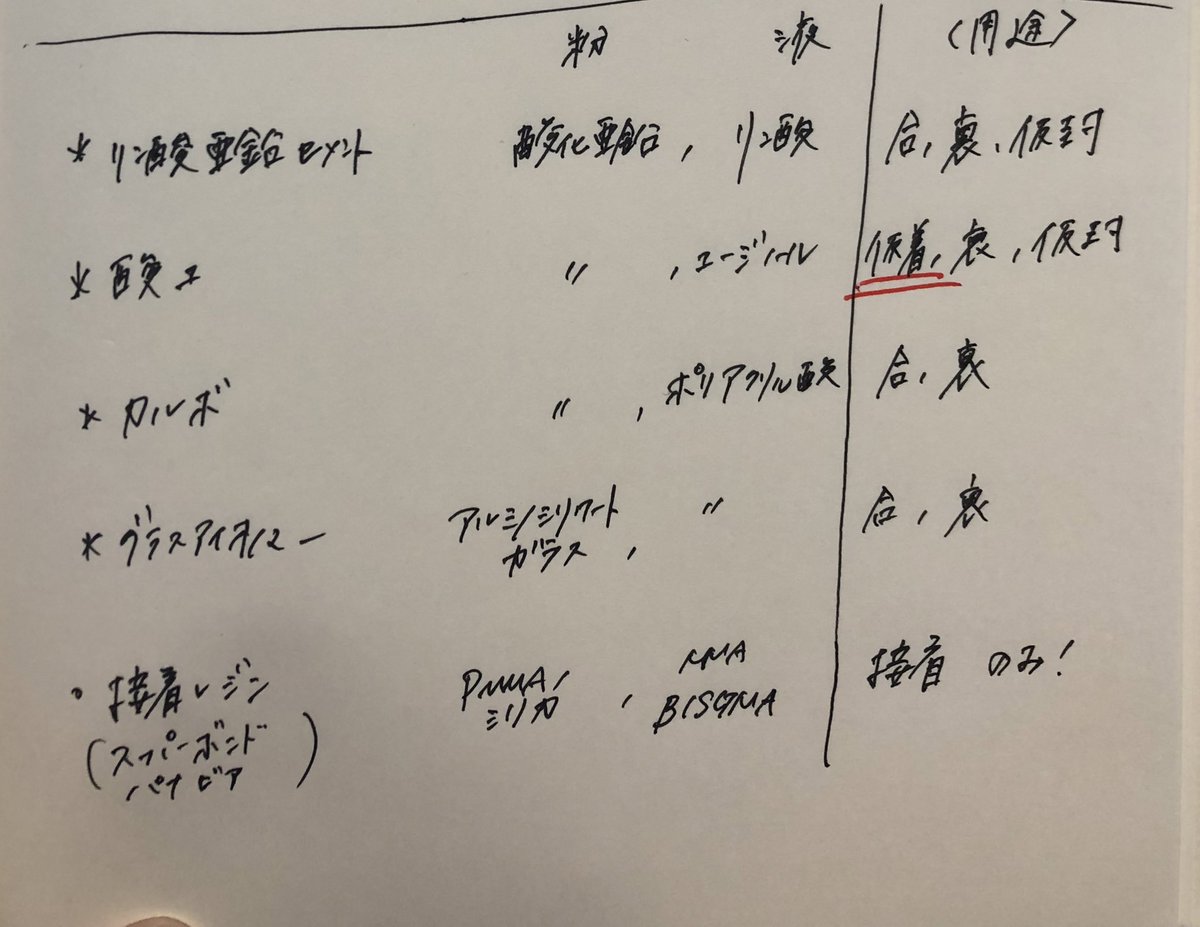 粉 液 〈用途〉
* リン酸亜鉛セメント 酸化亜鉛, リン酸 合, 裏, 仮封
* 酸ユ 〃 , ユージノール 仮着, 裏, 仮封
* カルボ 〃 , ポリアクリル酸 合, 裏
* グラスアイオノマー アルミノシリケート 〃 合, 裏
ガラス ,
・接着レジン PMMA, , MMA 接着 のみ!
シリカ BISGMA
(スーパーボンド
パナビア)